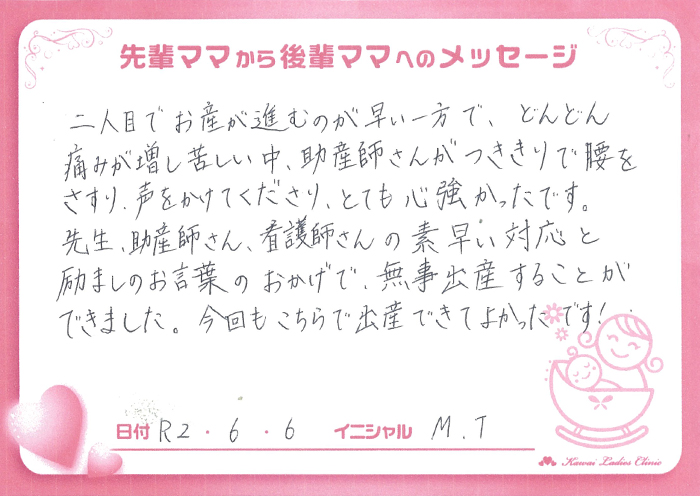 先輩ママから後輩ママへのメッセージ
二人目でお産が進むのが早い一方で、どんどん
痛みが増し苦しい中、助産師さんがつききりで腰を
さすり、声をかけてくださり、とても心強かったです。
先生、助産師さん、看護師さんの素早い対応と
励ましのお言葉のおかげで、無事出産することが
できました。今回もこちらで出産できてよかったです!
日付 R2・6・6 イニシャル M.T
Kawai Ladies Clinic